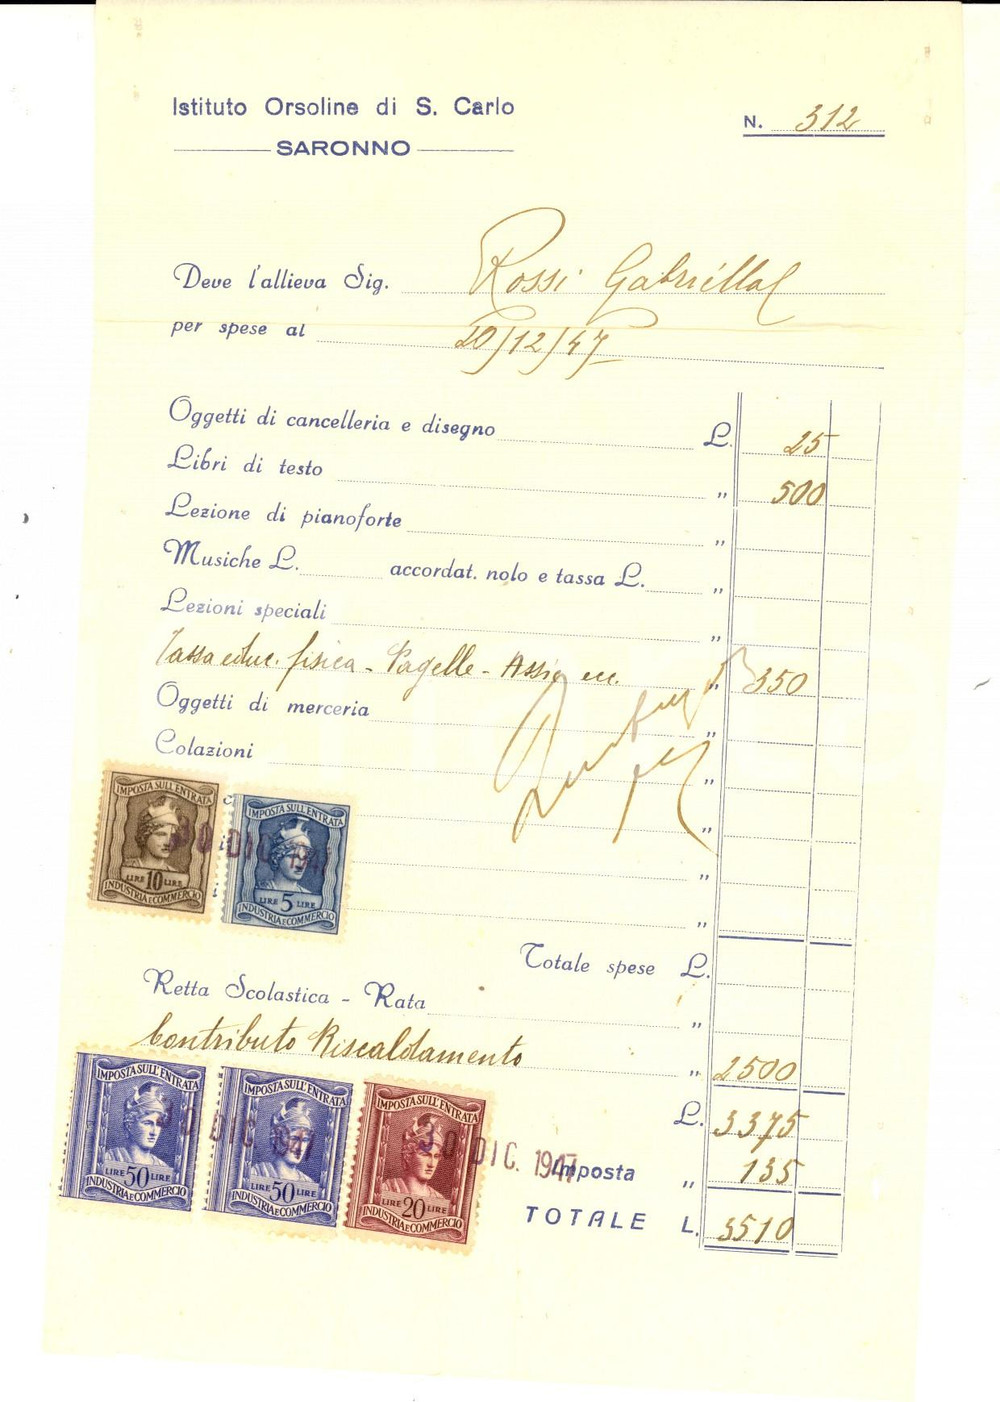 Istituto Orsoline di S. Carlo
SARONNO
N. 312
Deve l'allieva Sig. Rossi Gabriella
per spese al 20/12/47
Oggetti di cancelleria e disegno L. 25
Libri di testo " 500
Lezione di pianoforte "
Musiche L. accordat. nolo e tassa L. "
Lezioni speciali "
Tassa educ. fisica - Pagelle - Assic ecc. " 350
Oggetti di merceria "
Colazioni "
"
"
"
IMPOSTA SULL'ENTRATA
LIRE 10 LIRE
INDUSTRIA E COMMERCIO
IMPOSTA SULL'ENTRATA
LIRE 5 LIRE
INDUSTRIA E COMMERCIO
30 DIC. 1947
Totale spese L.
Retta Scolastica - Rata "
Contributo Riscaldamento " 2500
L. 3375
Imposta " 135
TOTALE L. 3510
IMPOSTA SULL'ENTRATA
LIRE 50 LIRE
INDUSTRIA E COMMERCIO
IMPOSTA SULL'ENTRATA
LIRE 50 LIRE
INDUSTRIA E COMMERCIO
IMPOSTA SULL'ENTRATA
LIRE 20 LIRE
INDUSTRIA E COMMERCIO
30 DIC 1947
30 DIC. 1947